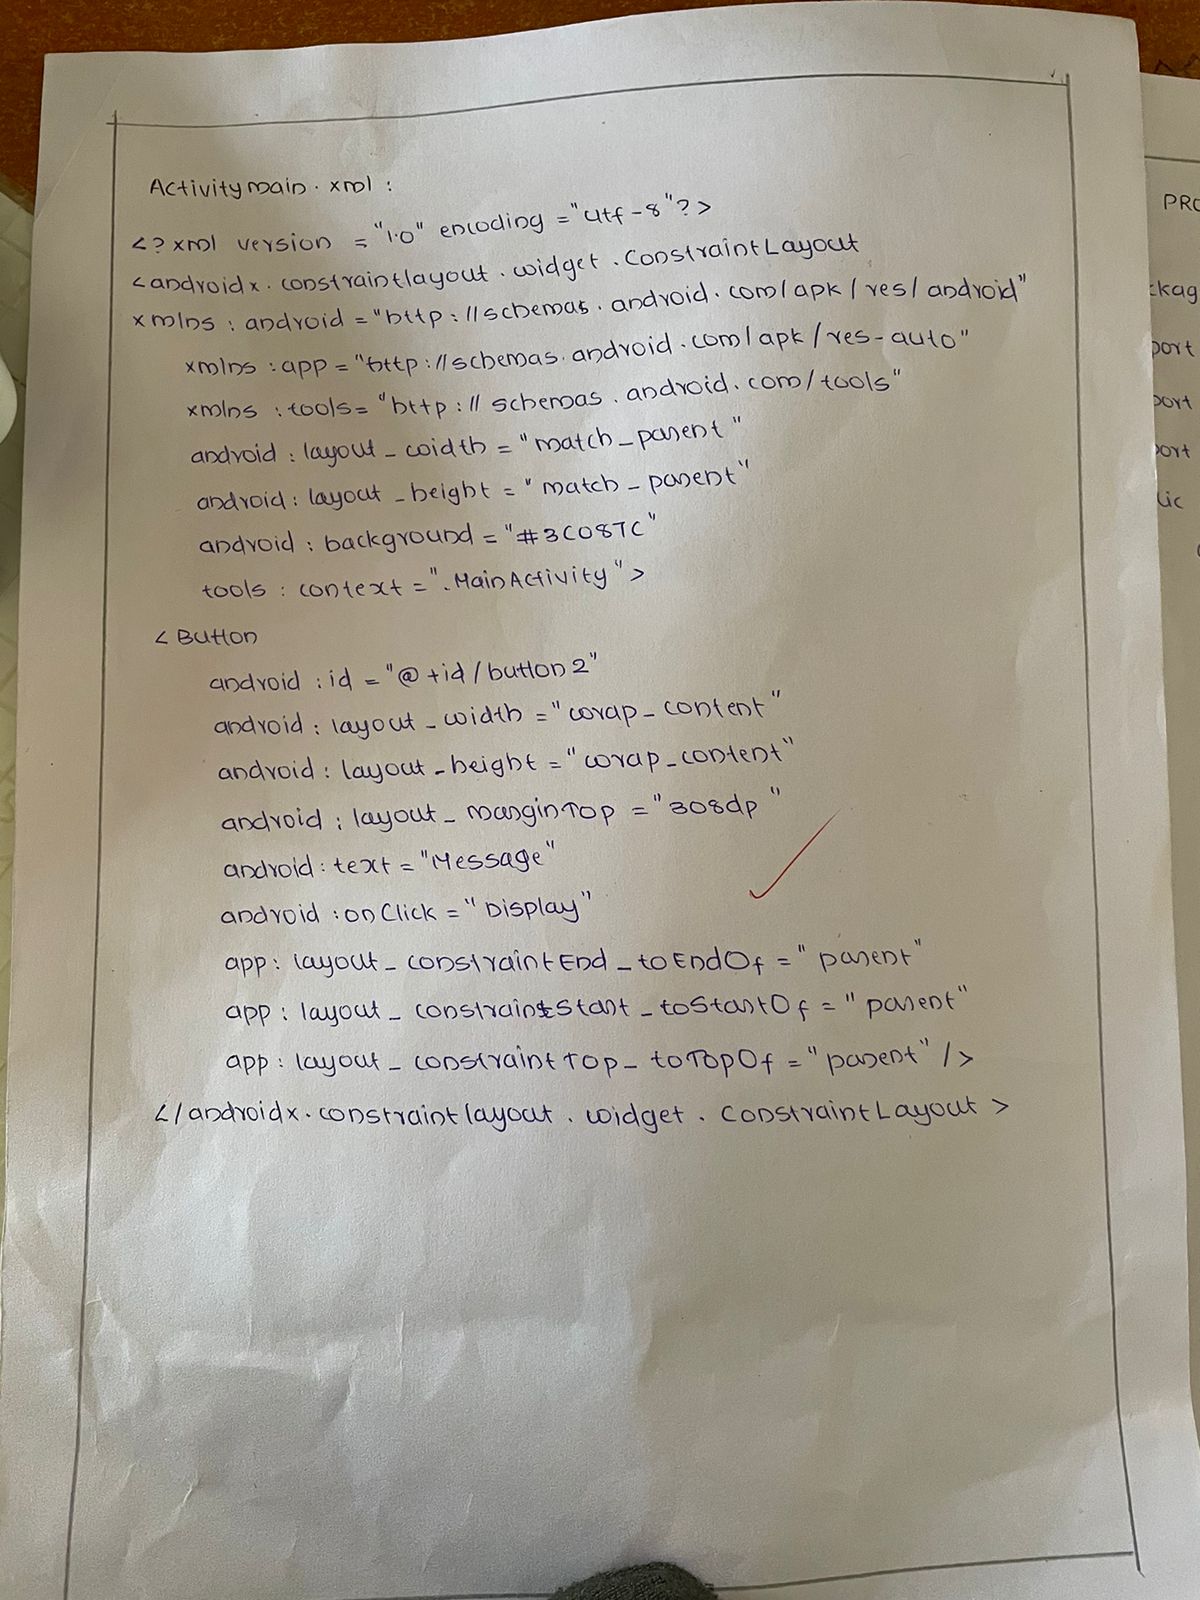 Activitymain.xml:
<?xml version = "1.0" encoding = "utf-8"?>
<androidx.constraintlayout.widget.ConstraintLayout
xmlns : android = "http://schemas.android.com/apk/res/android"
xmlns : app = "http://schemas.android.com/apk/res-auto"
xmlns : tools = "http://schemas.android.com/tools"
android : layout_width = "match_parent"
android : layout_height = "match_parent"
android : background = "#3C087C"
tools : context = ".MainActivity">
<Button
android : id = "@+id/button2"
android : layout_width = "wrap_content"
android : layout_height = "wrap_content"
android : layout_marginTop = "308dp"
android : text = "Message"
android : onClick = "Display"
app : layout_constraintEnd_toEndOf = "parent"
app : layout_constraintStart_toStartOf = "parent"
app : layout_constraintTop_toTopOf = "parent" />
</androidx.constraintlayout.widget.ConstraintLayout>
PRO
ckag
port
port
port
lic